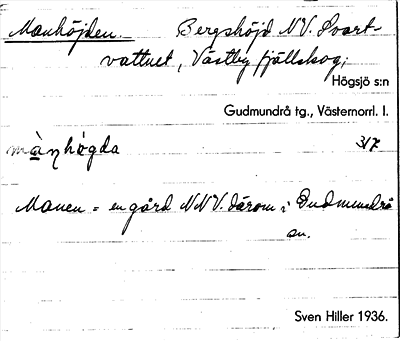 Manhöjden. Bergshöjd N.V. Svart-
vattnet, Västby fjällskog;
Högsjö s:n
Gudmundrå tg., Västernorrl. l.
màŋhògda 3/7
Manen = en gård N.N.V. därom i Gudmundrå
sn.
Sven Hiller 1936.